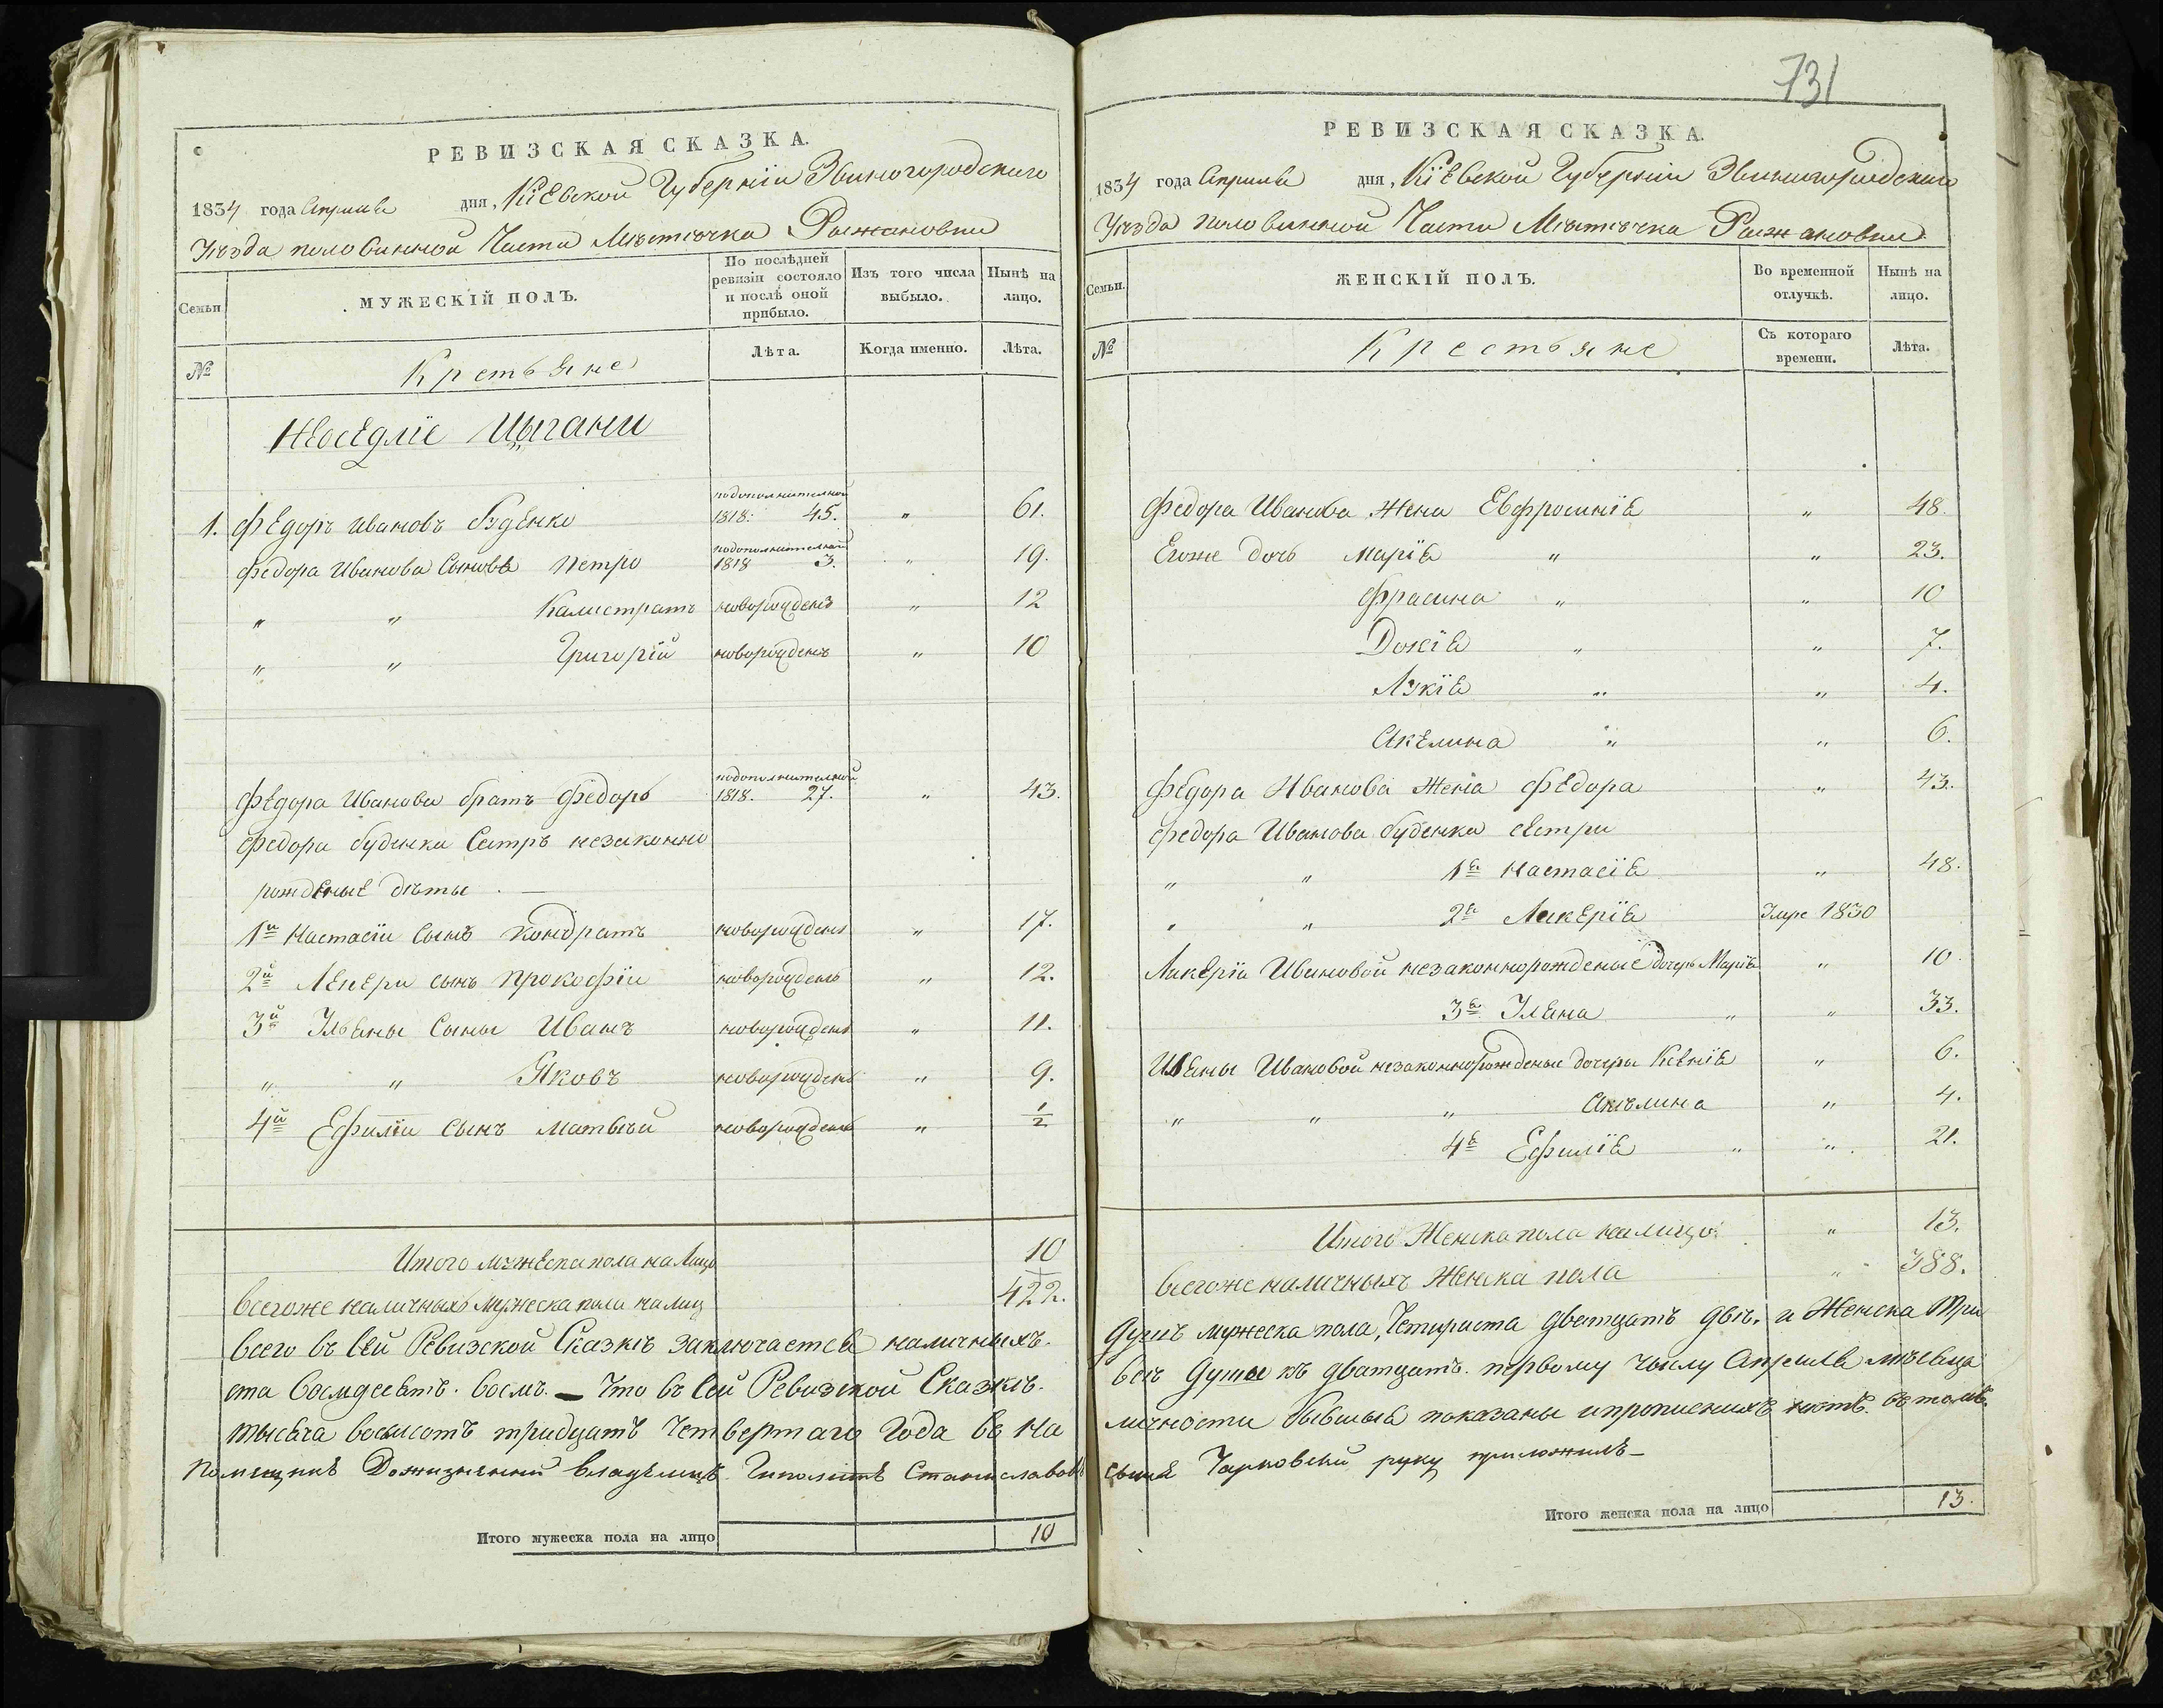 РЕВИЗСКАЯ СКАЗКА.
1834 года Апреля дня, Кіевской Губерніи Звиногородского
Уѣзда половинной Части Мѣстѣчка Рыжановки
Семьи
МУЖЕСКІЙ ПОЛЪ.
По послѣдней ревизіи состояло и послѣ оной прибыло.
Изъ того числа выбыло.
Нынѣ на лицо.
№
Крстьяне
Лѣта.
Когда именно.
Лѣта.
Неосѣдліе Цыгани
1. Федоръ Ивановъ Буденко подополнителной 1818: 45. " 61.
Федора Иванова Сыновя Петро подополнителной 1818 3. " 19.
" " Калистратъ новорожденъ " 12
" " Григорій новорожденъ " 10
Федора Иванова братъ Федоръ подополнителной 1818. 27. " 43.
Федора буденка Сестръ незаконно
рожденые дѣты
1й Настасіи Сынъ Кондратъ новорожденъ " 17.
2й Лекери сынъ Прокофіи новорожденъ " 12.
3й Ильены Сыны Иванъ новорожденъ " 11.
" " Яковъ новорожденъ " 9.
4й Ефиміи сынъ Матвѣй новорожденъ " 1/2
Итого мужеска пола на Лицо 10
Всегоже наличныхъ мужеска пола на лиц 422.
Всего въ сей Ревизской Сказкѣ заключается наличныхъ
ста восмдесятъ. восмъ. — Что въ Сей Ревизской Сказкѣ.
тысяча восмсотъ тридцатъ четвертаго Года въ На
Помещикъ Дожизненний владѣлецъ Гиполитъ Станиславовъ
Итого мужеска пола на лицо 10
731
РЕВИЗСКАЯ СКАЗКА.
1834 года Апреля дня, Кіевской Губерніи Звиногородского
Уѣзда половинной Части Мѣстѣчка Рыжановки
Семьи.
ЖЕНСКІЙ ПОЛЪ.
Во временной отлучкѣ.
Нынѣ на лицо.
№
Крестьяне
Съ котораго времени.
Лѣта.
Федора Иванова Жена Евфросинія " 48.
Егоже дочь Марія " " 23.
Фрасина " " 10
Докія " " 7.
Лукія " " 4.
Акелина " " 6.
Федора Иванова Жена Федора " 43.
Федора Иванова буденка сестри
" " 1я Настасія " 48.
" " 2я Лекерія 1830
Лекеріи Ивановой незаконнорожденые дочерь Марія " 10
3я Илена " " 33.
Илены Ивановой незаконнорожденые дочеры Ксенія " 6.
" " " Акелина " 4.
4я Ефимія " " 21.
Итого Женска пола налицо: " 13.
Всегоже наличныхъ Женска пола " 388.
Душъ мужеска пола, Четыриста дватцатъ двѣ. и Женска Три
всѣ Души къ дватцатъ. первому числу Апреля мѣсяца
личности бывшыя показаны и прописнихъ нѣтъ. въ томъ.
сынъ Чарковский руку приложилъ —
Итого женска пола на лицо 13.